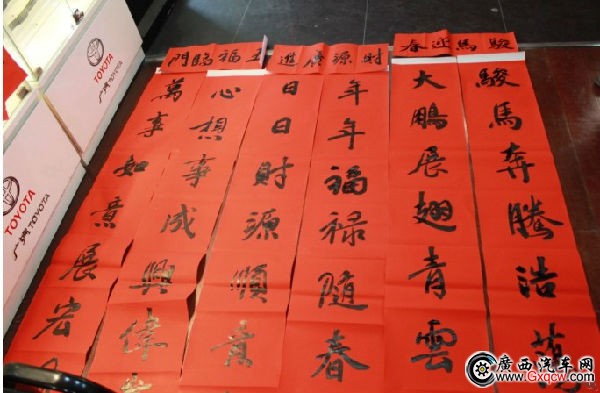 駿馬迎春
駿馬奔騰浩
大鵬展翅青雲
財源廣進
年年福祿隨春
日日財源順意
五福臨門
心想事成興偉
萬事如意展宏
TOYOTA
广汽TOYOTA
TOYOTA
广汽TOYOTA
廣西汽车网
www.Gxqcw.com